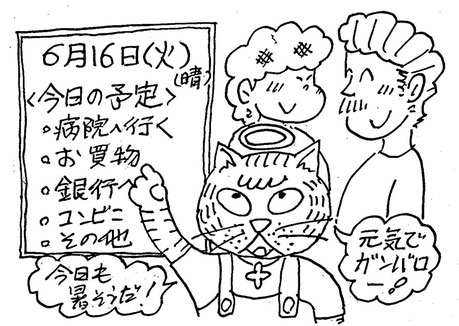 6月16日(火)
(晴)
<今日の予定>
。病院へ行く
。お買物
。銀行へ
。コンビニ
。その他
今日も
暑そうだ!
元気で
ガンバロ
ー。